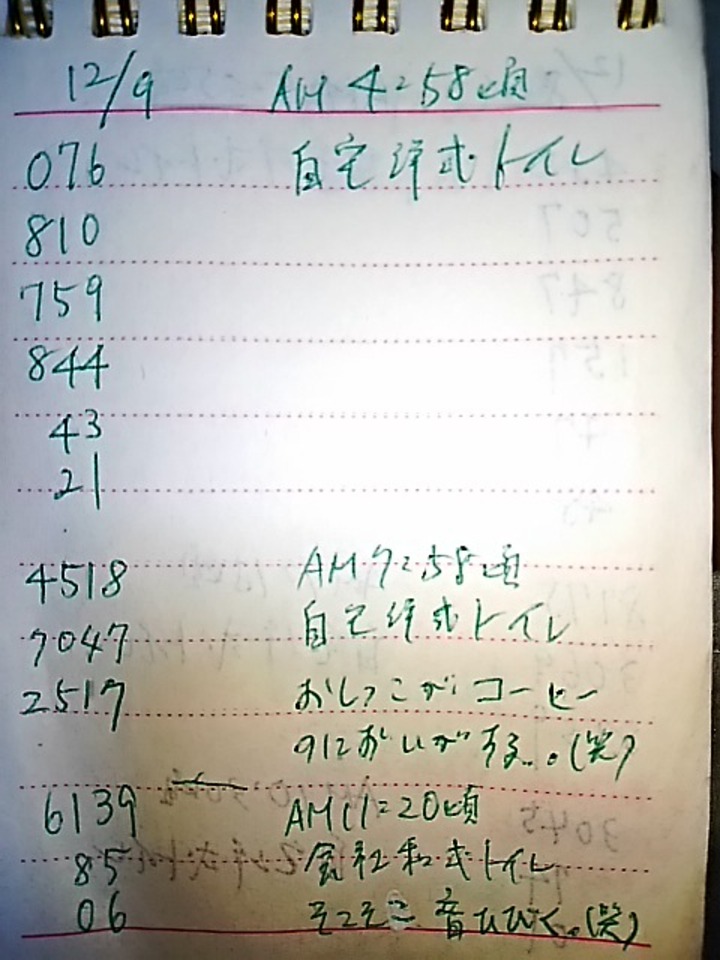 12/9 AM 4:58頃
076 自宅洋式トイレ
810
759
844
43
21
4518 AM 7:58頃
7047 自宅洋式トイレ
2517 おしっこがコーヒー
のにおいがする..。(笑)
6139 AM11:20頃
85 会社和式トイレ
06 そこそこ音ひびく。(笑)